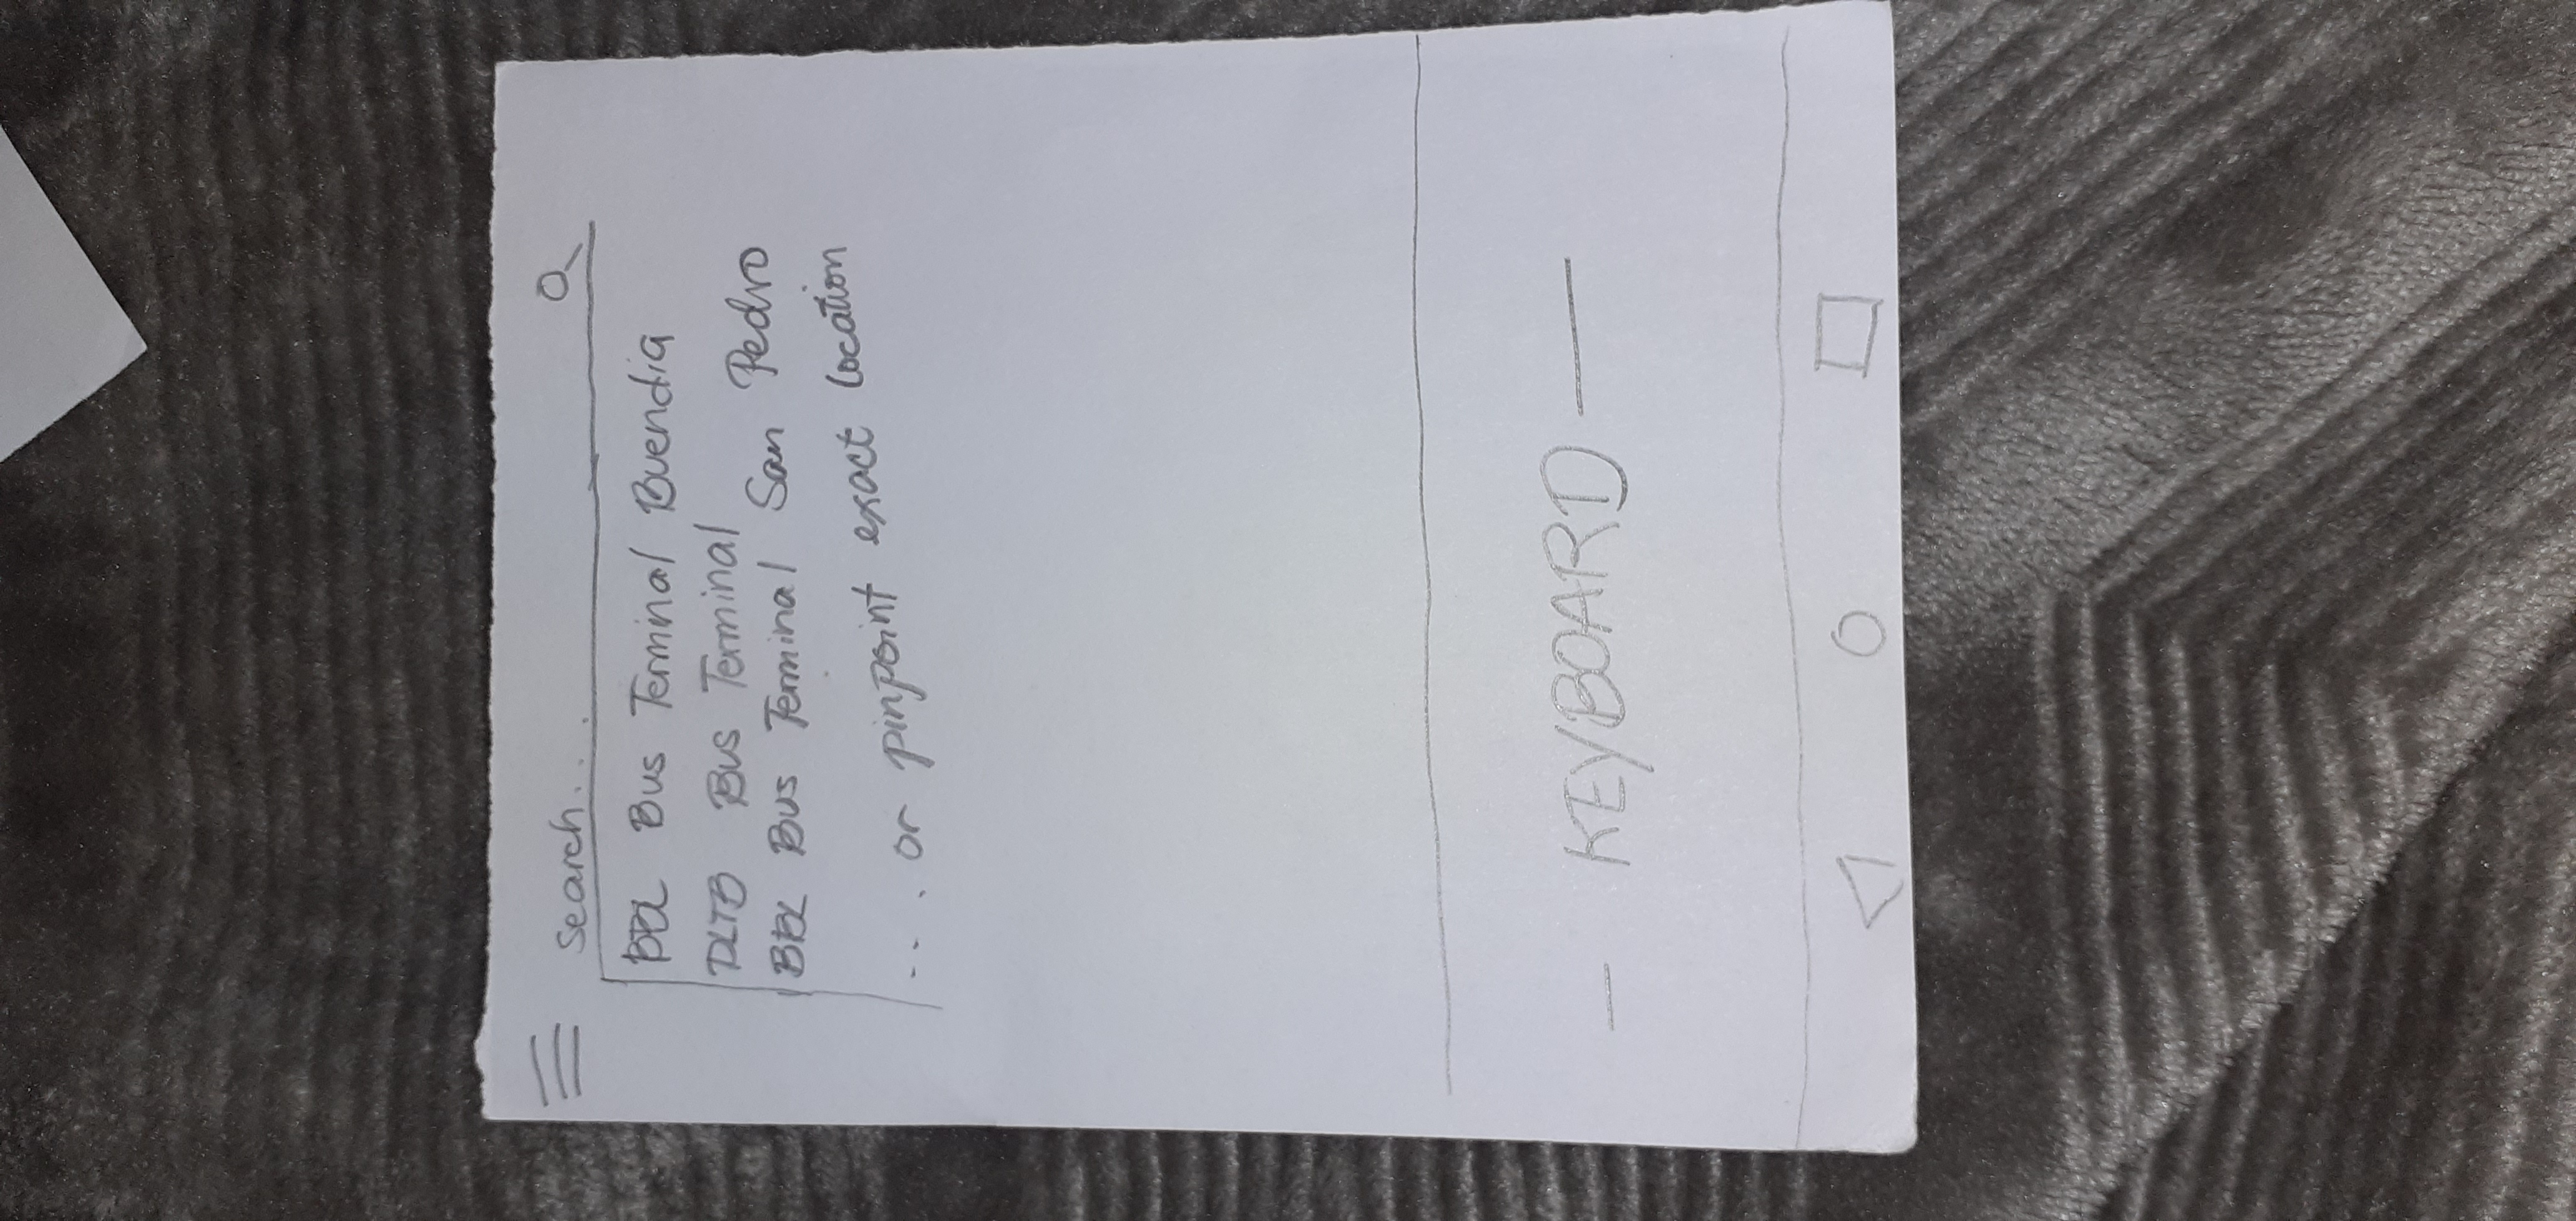 search....
BBL Bus Terminal Buendia
DLTB Bus Terminal
BBL Bus Terminal San Pedro
.... or pinpoint exact location
- KEYBOARD -